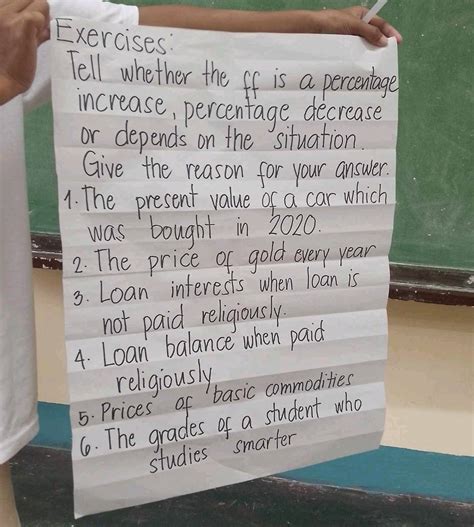 Exercises:
Tell whether the ff is a percentage
increase, percentage decrease
or depends on the situation.
Give the reason for your answer.
1. The present value of a car which
was bought in 2020.
2. The price of gold every year
3. Loan interests when loan is
not paid religiously.
4. Loan balance when paid
religiously
5. Prices of basic commodities
6. The grades of a student who
studies smarter